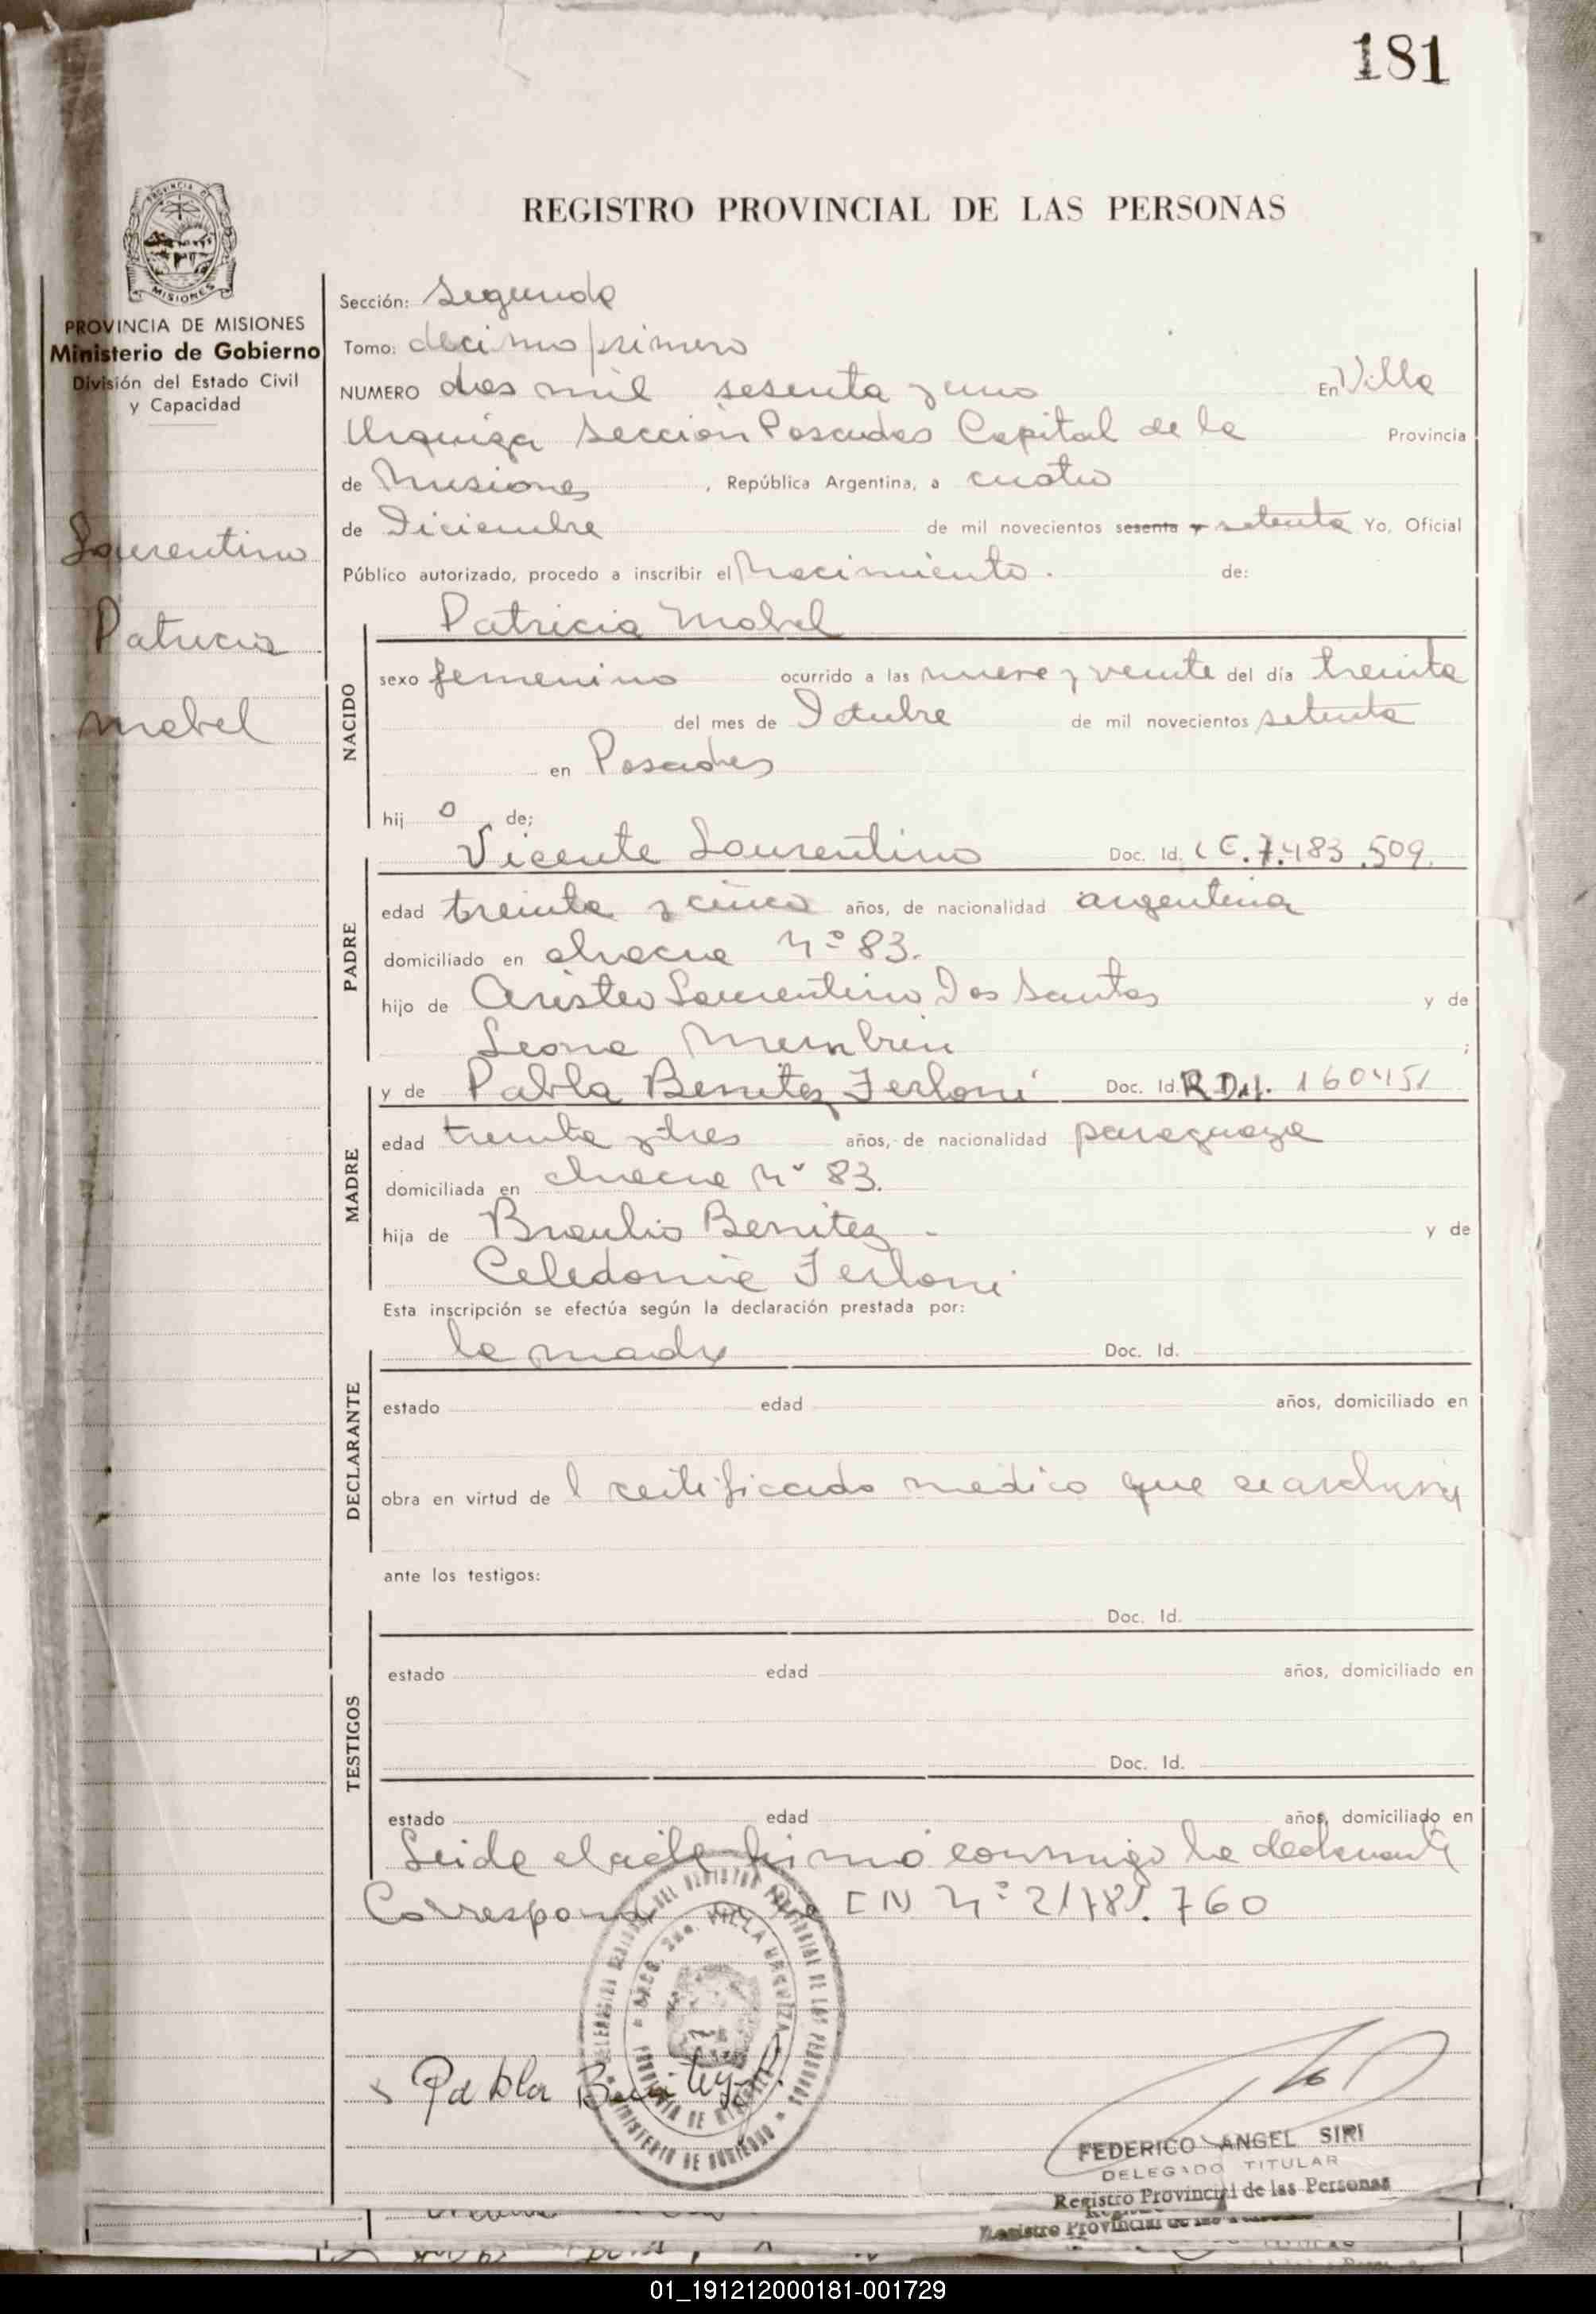 181
PROVINCIA DE
MISIONES
PROVINCIA DE MISIONES
Ministerio de Gobierno
División del Estado Civil
y Capacidad
Laurentino
Patricia
Mabel
REGISTRO PROVINCIAL DE LAS PERSONAS
Sección: Segunda
Tomo: decimo primero
NUMERO dos mil sesenta y uno En Villa
Urquiza Sección Posadas Capital de la Provincia
de Misiones, República Argentina, a cuatro
de Diciembre de mil novecientos sesenta y setenta Yo, Oficial
Público autorizado, procedo a inscribir el Nacimiento. de:
Patricia Mabel
NACIDO
sexo femenino ocurrido a las nueve y veinte del día treinta
del mes de Octubre de mil novecientos setenta
en Posadas
hij o de;
Vicente Laurentino Doc. Id. C. 7.483.509.
PADRE
edad treinta y cinco años, de nacionalidad argentina
domiciliado en chacra Nº 83.
hijo de Aristeo Laurentino Dos Santos y de
Leona ;
y de Pabla Benitez Ferloni Doc. Id. R 160451
MADRE
edad treinta y tres años, de nacionalidad paraguaya
domiciliada en chacra Nº 83.
hija de Braulio Benitez - y de
Celedonia Ferloni
Esta inscripción se efectúa según la declaración prestada por:
la madre Doc. Id.
DECLARANTE
estado edad años, domiciliado en
obra en virtud de l certificado medico que se archiva
ante los testigos:
Doc. Id.
TESTIGOS
estado edad años, domiciliado en
Doc. Id.
estado edad años, domiciliado en
Leida el acta firmó conmigo la declarante
Corresponde Nº 760
VILLA URQUIZA
MINISTERIO DE GOBIERNO
Pabla Benitez
FEDERICO ANGEL SIRI
DELEGADO TITULAR
Registro Provincial de las Personas
Registro Provincial de las Personas
01_191212000181-001729